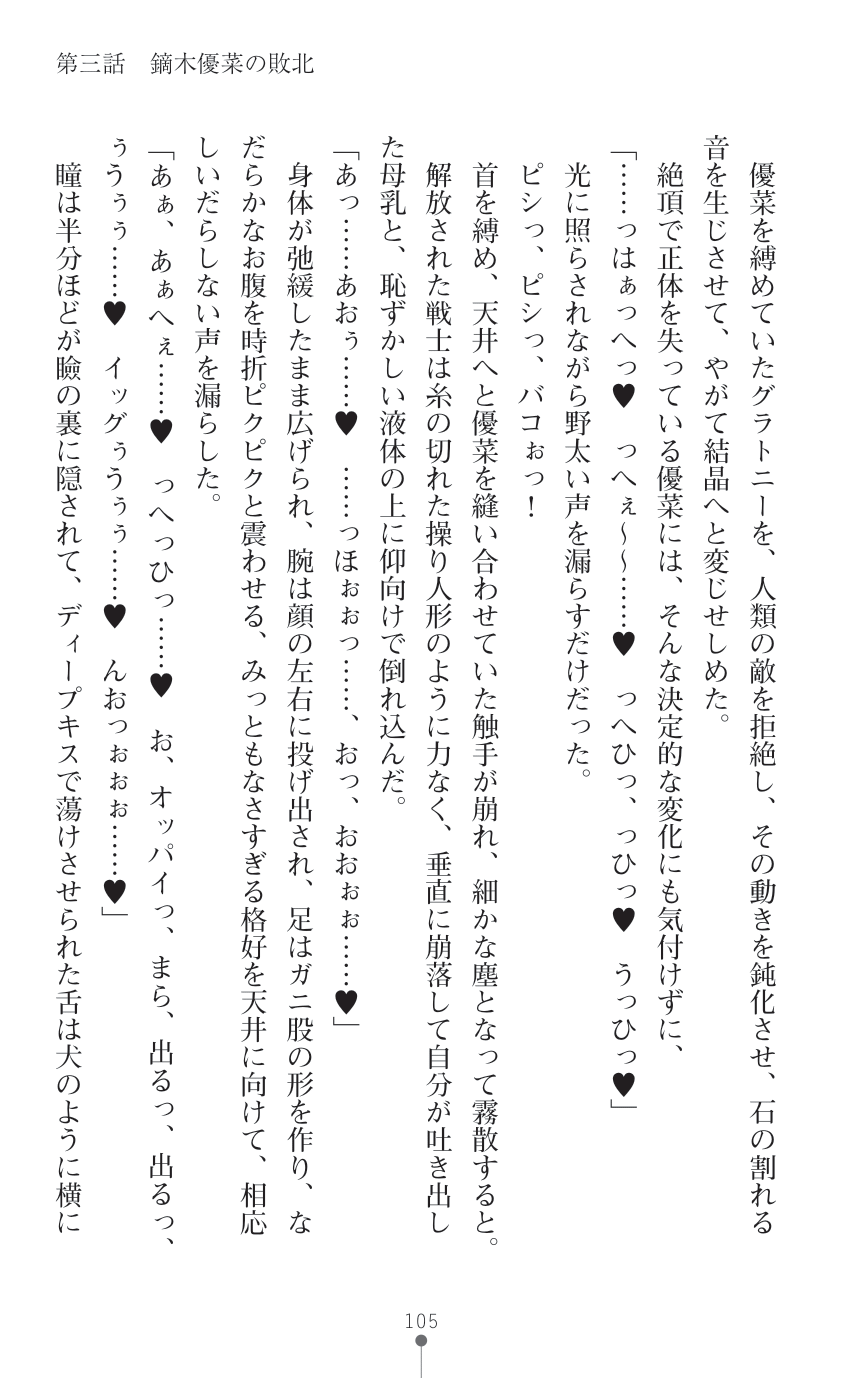 第三話　鏑木優菜の敗北
優菜を縛めていたグラトニーを、人類の敵を拒絶し、その動きを鈍化させ、石の割れる
音を生じさせて、やがて結晶へと変じせしめた。
絶頂で正体を失っている優菜には、そんな決定的な変化にも気付けずに、
「……っはぁっへっ♥　っへぇ～～……♥　っへひっ、っひっ♥　うっひっ♥」
光に照らされながら野太い声を漏らすだけだった。
ピシっ、ピシっ、バコぉっ！
首を縛め、天井へと優菜を縫い合わせていた触手が崩れ、細かな塵となって霧散すると。
解放された戦士は糸の切れた操り人形のように力なく、垂直に崩落して自分が吐き出し
た母乳と、恥ずかしい液体の上に仰向けで倒れ込んだ。
「あっ……あおぅ……♥　……っほぉぉっ……、おっ、おおぉぉ……♥」
身体が弛緩したまま広げられ、腕は顔の左右に投げ出され、足はガニ股の形を作り、な
だらかなお腹を時折ピクピクと震わせる、みっともなさすぎる格好を天井に向けて、相応
しいだらしない声を漏らした。
「あぁ、あぁへぇ……♥　っへっひっ……♥　お、オッパイっ、まら、出るっ、出るっ、
ぅうぅぅ……♥　イッグぅうぅぅ……♥　んおっぉぉぉ……♥」
瞳は半分ほどが瞼の裏に隠されて、ディープキスで蕩けさせられた舌は犬のように横に
105